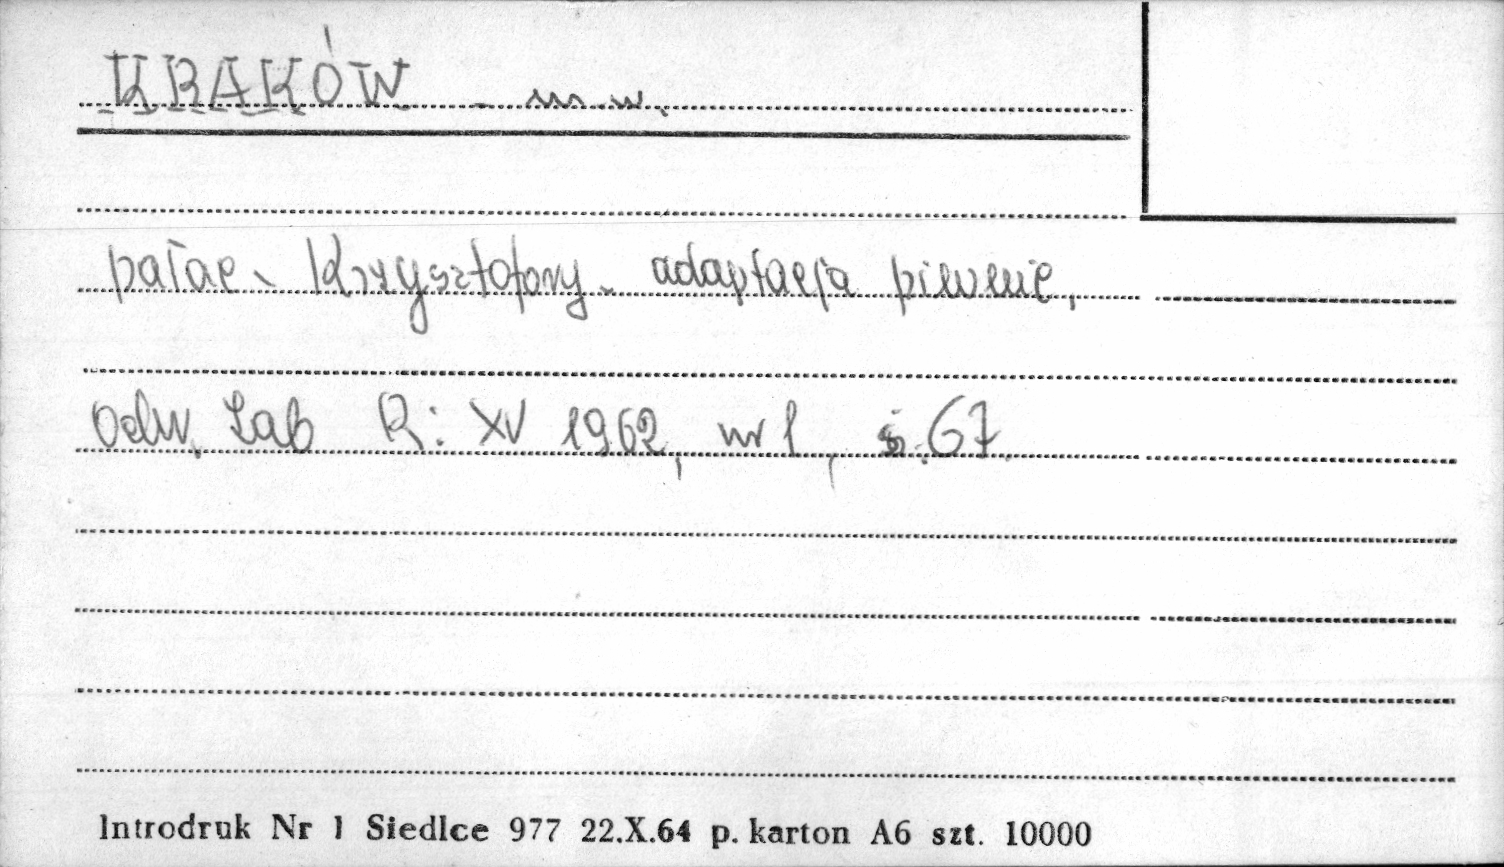 KRAKÓW - m.w.
pałac - Krzysztofory - adaptacja piwnic,
Ochr. Zab R: XV 1962, nr 1, s. 67.
Introdruk Nr 1 Siedlce 977 22.X.64 p. karton A6 szt. 10000